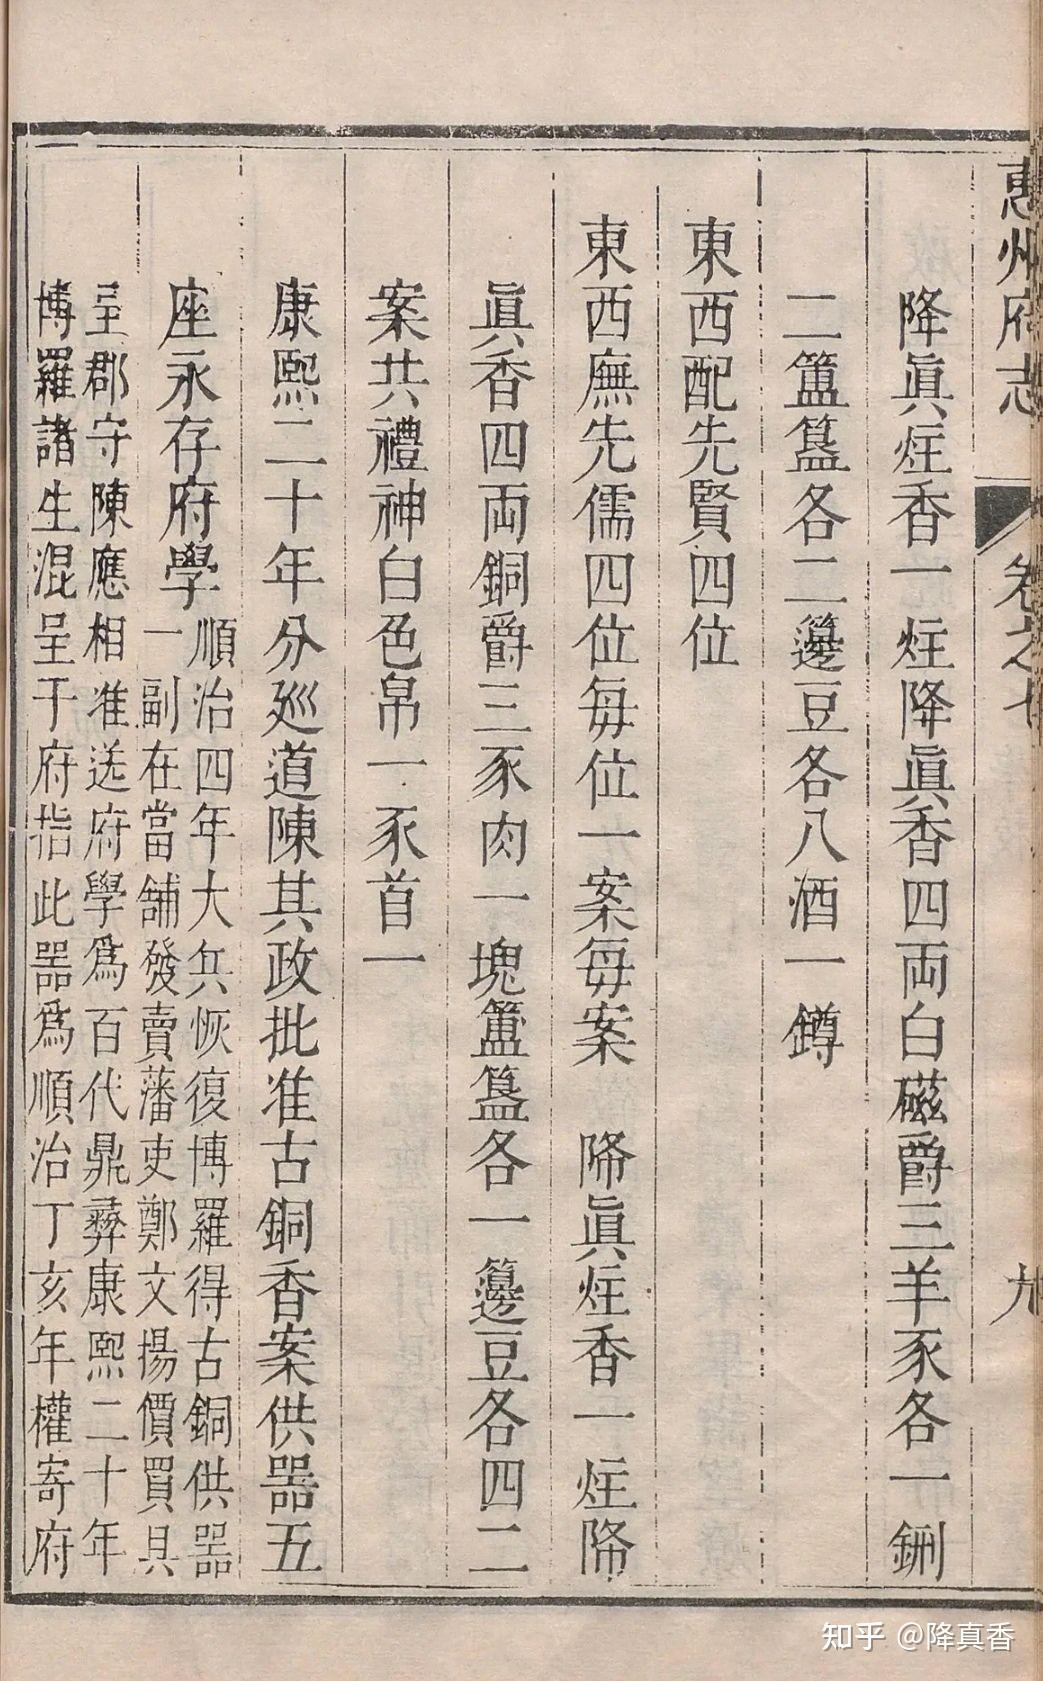 惠州府志
卷之七
九
降眞炷香一炷降眞香四両白磁爵三羊豕各一鉶
二簠簋各二籩豆各八酒一鐏
東西配先賢四位
東西廡先儒四位每位一案每案　降眞炷香一炷降
眞香四両銅爵三豕肉一塊簠簋各一籩豆各四二
案共禮神白色帛一豕首一
康熙二十年分廵道陳其政批准古銅香案供器五
座永存府學
順治四年大兵恢復博羅得古銅供器
一副在當舖發賣藩吏鄭文揚價買具
呈郡守陳應相准送府學爲百代鼎彝康熙二十年
博羅諸生混呈于府指此器爲順治丁亥年權寄府
知乎 @降真香